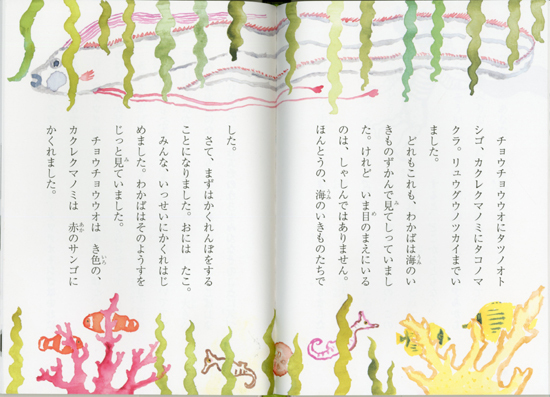 チョウチョウウオにタツノオト
シゴ、カクレクマノミにタコノマ
クラ。リュウグウノツカイまでい
ました。
どれもこれも、わかばは海のい
きものずかんで見てしっていまし
た。けれど いま目のまえにいる
のは、しゃしんではありません。
ほんとうの、海のいきものたちで
した。
さて、まずはかくれんぼをする
ことになりました。おには たこ。
みんな、いっせいにかくれはじ
めました。わかばはそのようすを
じっと見ていました。
チョウチョウウオは き色の、
カクレクマノミは 赤のサンゴに
かくれました。